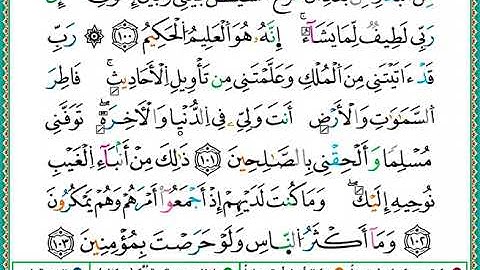 رَبِّى لَطِيفٌ لِّمَا يَشَآءُ ۚ إِنَّهُۥ هُوَ ٱلْعَلِيمُ ٱلْحَكِيمُ ١٠٠ ۞ رَبِّ
قَدْ ءَاتَيْتَنِى مِنَ ٱلْمُلْكِ وَعَلَّمْتَنِى مِن تَأْوِيلِ ٱلْأَحَادِيثِ ۚ فَاطِرَ
ٱلسَّمَٰوَٰتِ وَٱلْأَرْضِ أَنتَ وَلِىِّۦ فِى ٱلدُّنْيَا وَٱلْـَٔاخِرَةِ ۖ تَوَفَّنِى
مُسْلِمًا وَأَلْحِقْنِى بِٱلصَّٰلِحِينَ ١٠١ ذَٰلِكَ مِنْ أَنۢبَآءِ ٱلْغَيْبِ
نُوحِيهِ إِلَيْكَ ۖ وَمَا كُنتَ لَدَيْهِمْ إِذْ أَجْمَعُوٓا۟ أَمْرَهُمْ وَهُمْ يَمْكُرُونَ
١٠٢ وَمَآ أَكْثَرُ ٱلنَّاسِ وَلَوْ حَرَصْتَ بِمُؤْمِنِينَ ١٠٣